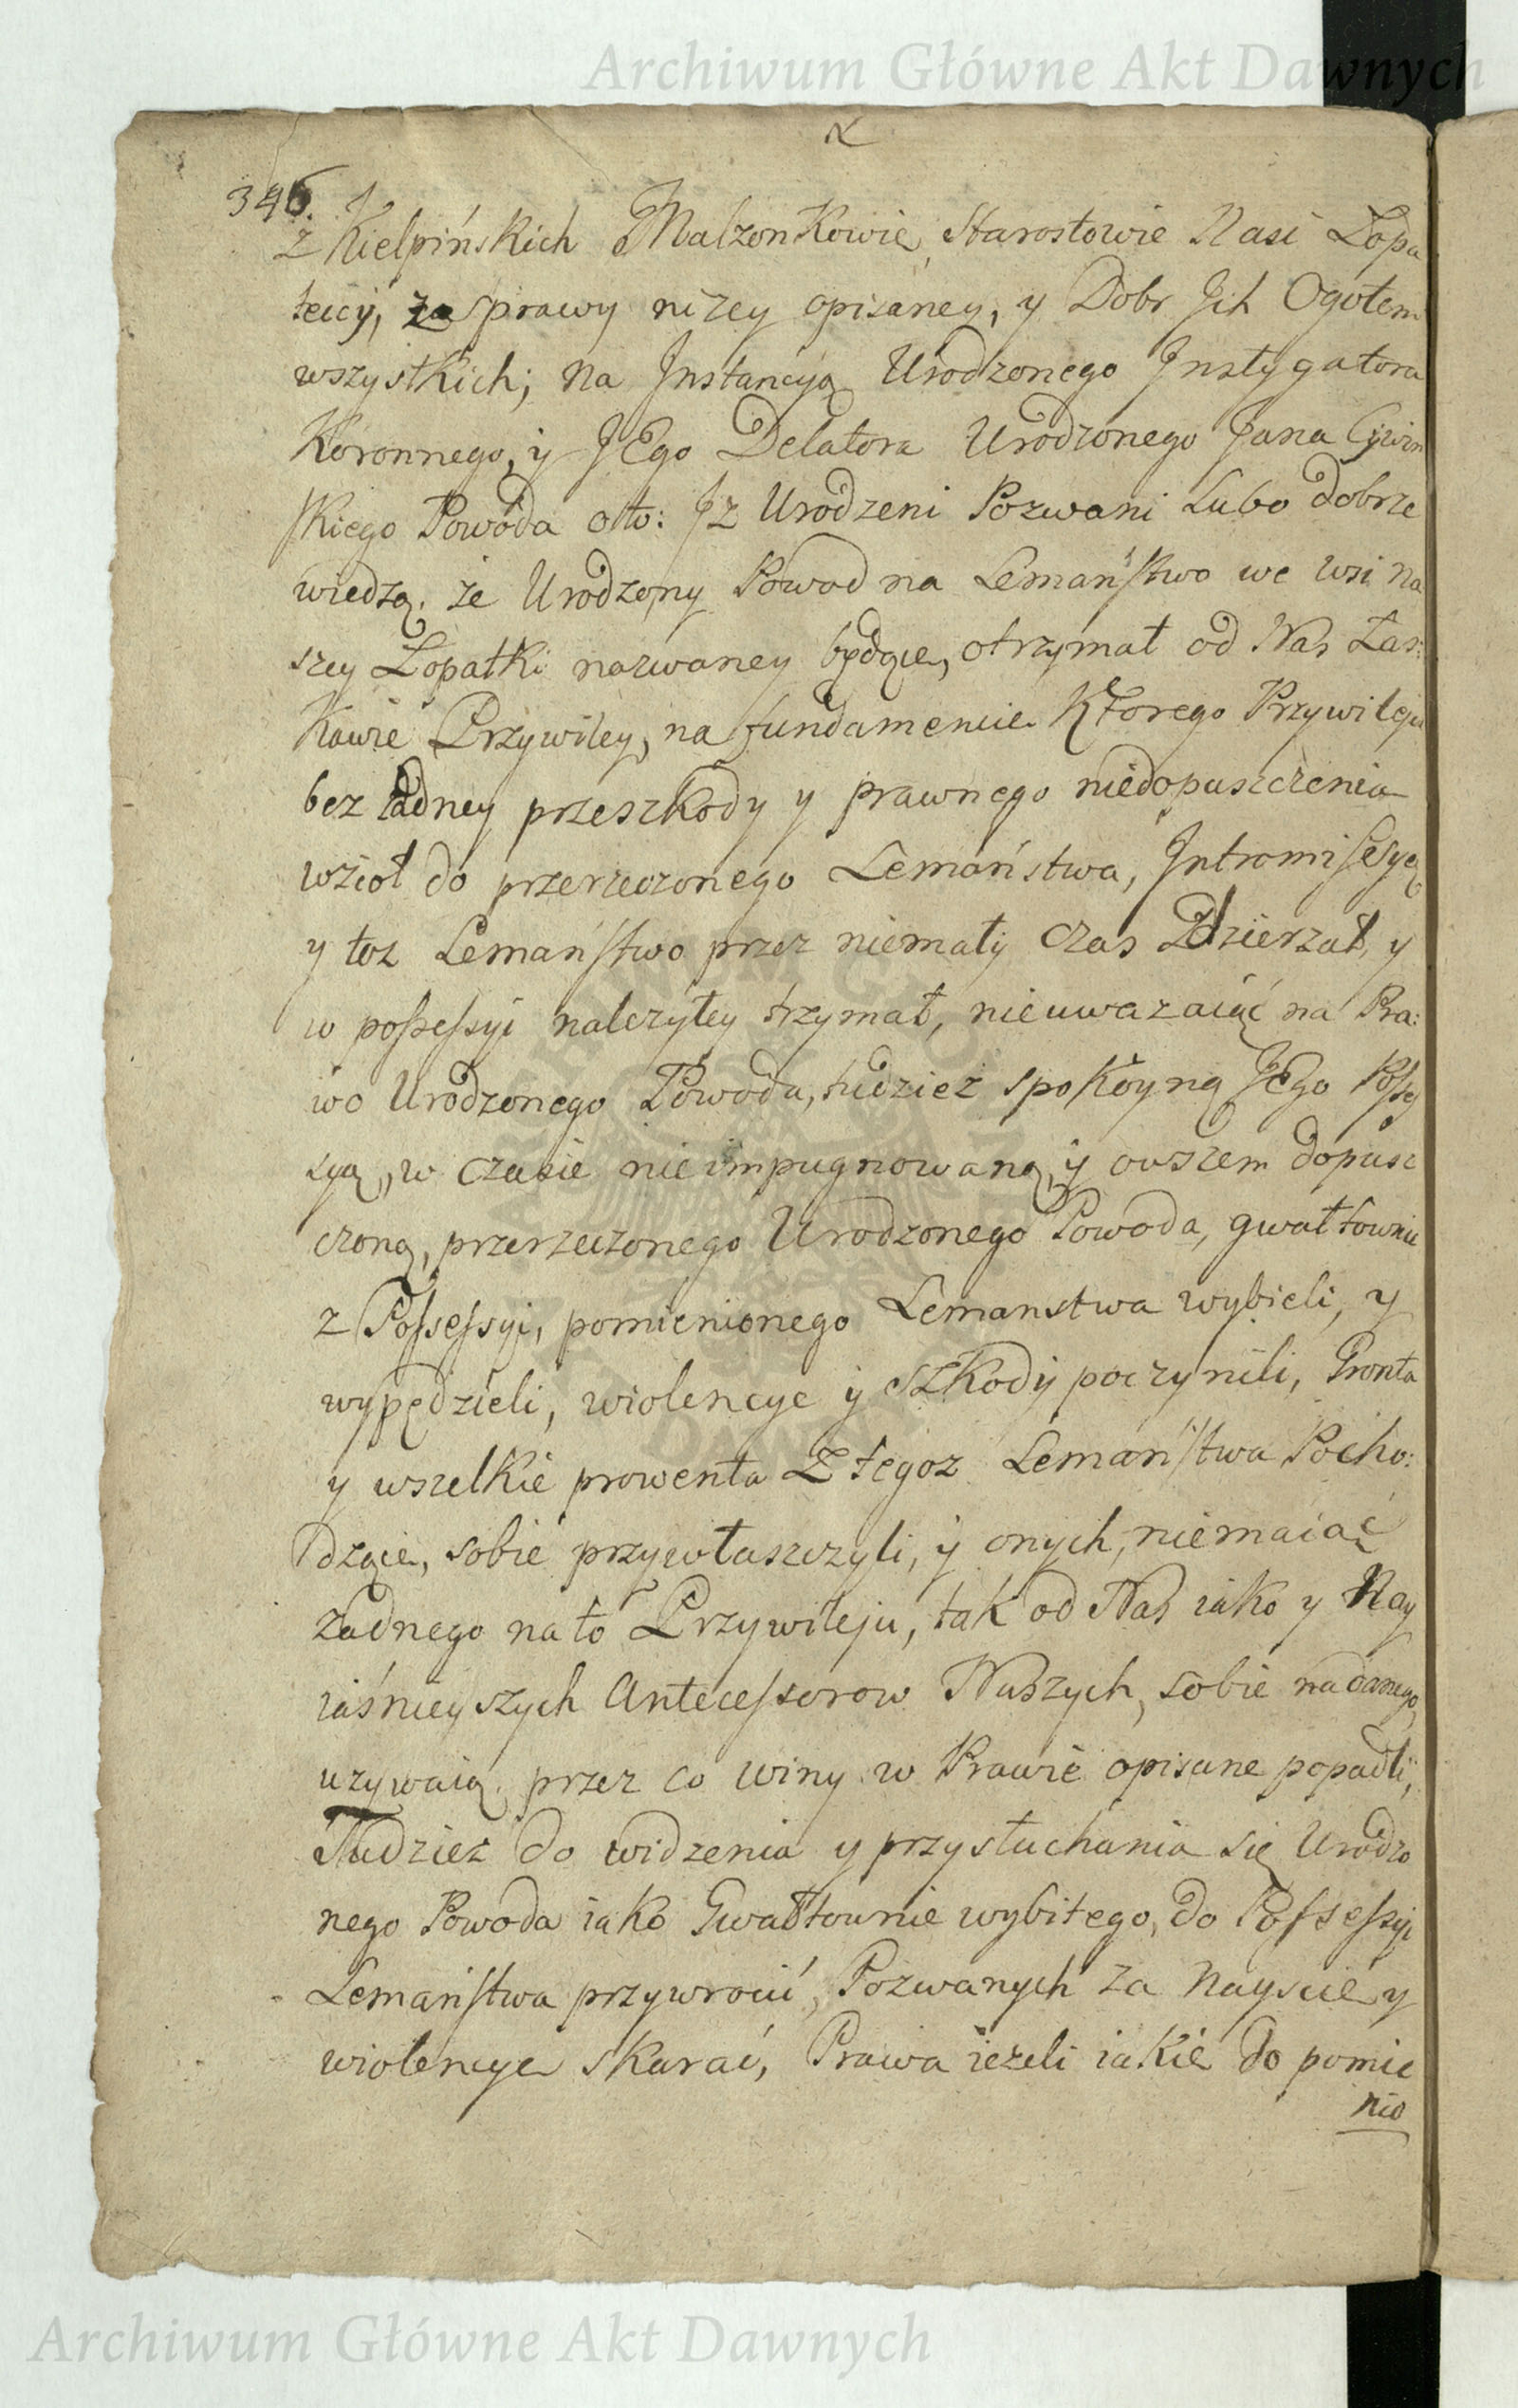 Archiwum Główne Akt Dawnych
346.
z Kielpińskich Małzonkowie, Starostowie Nasi Łopa
teccy, za sprawy nizey opisaney, y Dobr Jch Ogołem
wszystkich; na Jnstancyą Urodzonego Jnstygatora
Koronnego, y JEgo Delatora Urodzonego Jana
skiego Powoda oto: Jż Urodzeni Pozwani Lubo dobrze
wiedzą. że Urodzony Powod na Lemaństwo we wsi Na
szey Łopatki nazwaney będące, otrzymał od Nas Łas:
kawie Przywiley, na fundamencie Ktorego Przywileju
bez żadney przeszkody y prawnego niedopuszczenia
wzioł do przerzeczonego Lemaństwa, Jntromissyą
y toz Lemaństwo przez niemały czas Dzierzał, y
w possessyi nalezytey trzymał, nieuwazaiąc na Pra:
wo Urodzonego Powoda, tudziez spokoyną JEgo Posse
syą, w czasie nieimpugnowaną, y owszem dopusz
czoną, przerzeczonego Urodzonego Powoda, gwałtownie
z Possessyi, pomienionego Lemanstwa wybieli, y
wypędzieli, wiolencye y szkody poczynili, Gronta
y wszelkie prowenta Z tegoz Lemaństwa Pocho:
dzące, sobie przywłaszczyli, y onych, niemaiąc
żadnego na to Przywileju, tak od Nas iako y Nay
iaśnieyszych Antecessorow Naszych, sobie nadanego,
uzywaią. przez co winy w Prawie opisane popadli,
Tudziez do widzenia y przysłuchania się Urodzo
nego Powoda iako Gwałtownie wybitego, do Possessyi
Lemaństwa przywrocić, Pozwanych za Nayscie y
wiolencye skarać, Prawa iezeli iakie do pomie
nio
Archiwum Główne Akt Dawnych